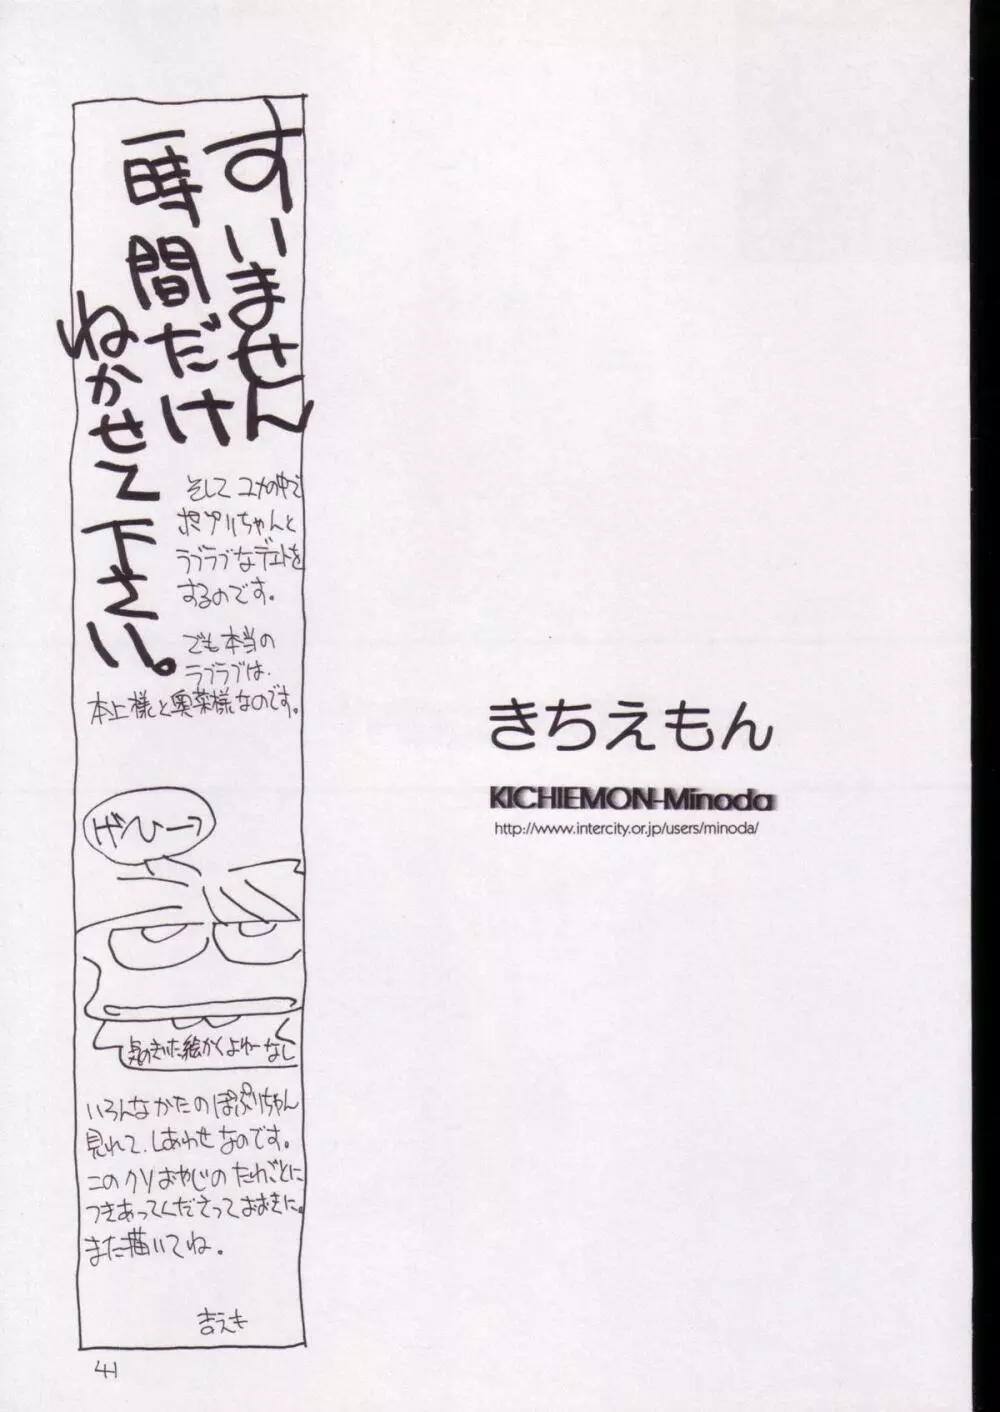 すいません
一時間だけ
ねかせて下さい。
そしてユメの中で
ポプリちゃんと
ラブラブなデェトを
するのです。
でも本当の
ラブラブは、
本上様と奥菜様なのです。
げひー
気のきいた絵かくよゆーなし
いろんなかたのぽぷりちゃん
見れて、しあわせなのです。
このクソおやじのたわごとに
つきあってくださっておおきに。
また描いてね。
吉えも
41
きちえもん
KICHIEMON-Minoda
http://www.intercity.or.jp/users/minoda/